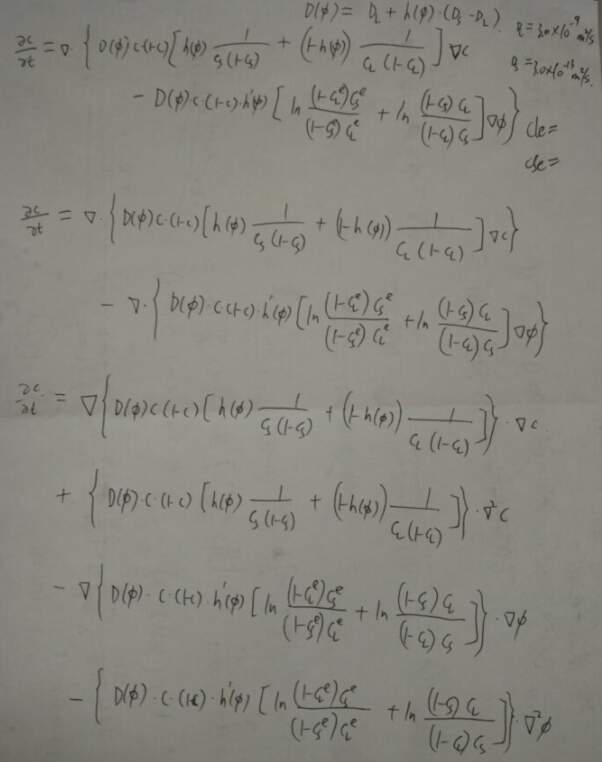 D(φ) = D_L + h(φ)·(D_S - D_L).
∂c/∂t = ∇·{ D(φ)c(1-c)[h(φ) 1/(c_s(1-c_s)) + (1-h(φ)) 1/(c_L(1-c_L))]∇c
- D(φ)c·(1-c)·h'(φ)[ln (1-c_L^e)c_s^e/((1-c_s^e)c_L^e) + ln (1-c_s)c_L/((1-c_L)c_s)]∇φ}
= 3.0×10^-9 m²/s
= 3.0×10^-13 m²/s.
cle=
cse=
∂c/∂t = ∇·{D(φ)c·(1-c)[h(φ) 1/(c_s(1-c_s)) + (1-h(φ)) 1/(c_L(1-c_L))]∇c}
- ∇·{D(φ)·c(1-c)·h'(φ)[ln (1-c_L^e)c_s^e/((1-c_s^e)c_L^e) + ln (1-c_s)c_L/((1-c_L)c_s)]∇φ}
∂c/∂t = ∇{D(φ)c(1-c)[h(φ) 1/(c_s(1-c_s)) + (1-h(φ)) 1/(c_L(1-c_L))]}·∇c
+ {D(φ)·c·(1-c)[h(φ) 1/(c_s(1-c_s)) + (1-h(φ)) 1/(c_L(1-c_L))]}·∇²c
- ∇{D(φ)·c·(1-c)·h'(φ)[ln (1-c_L^e)c_s^e/((1-c_s^e)c_L^e) + ln (1-c_s)c_L/((1-c_L)c_s)]}·∇φ
- {D(φ)·c·(1-c)·h'(φ)[ln (1-c_L^e)c_s^e/((1-c_s^e)c_L^e) + ln (1-c_s)c_L/((1-c_L)c_s)]}·∇²φ